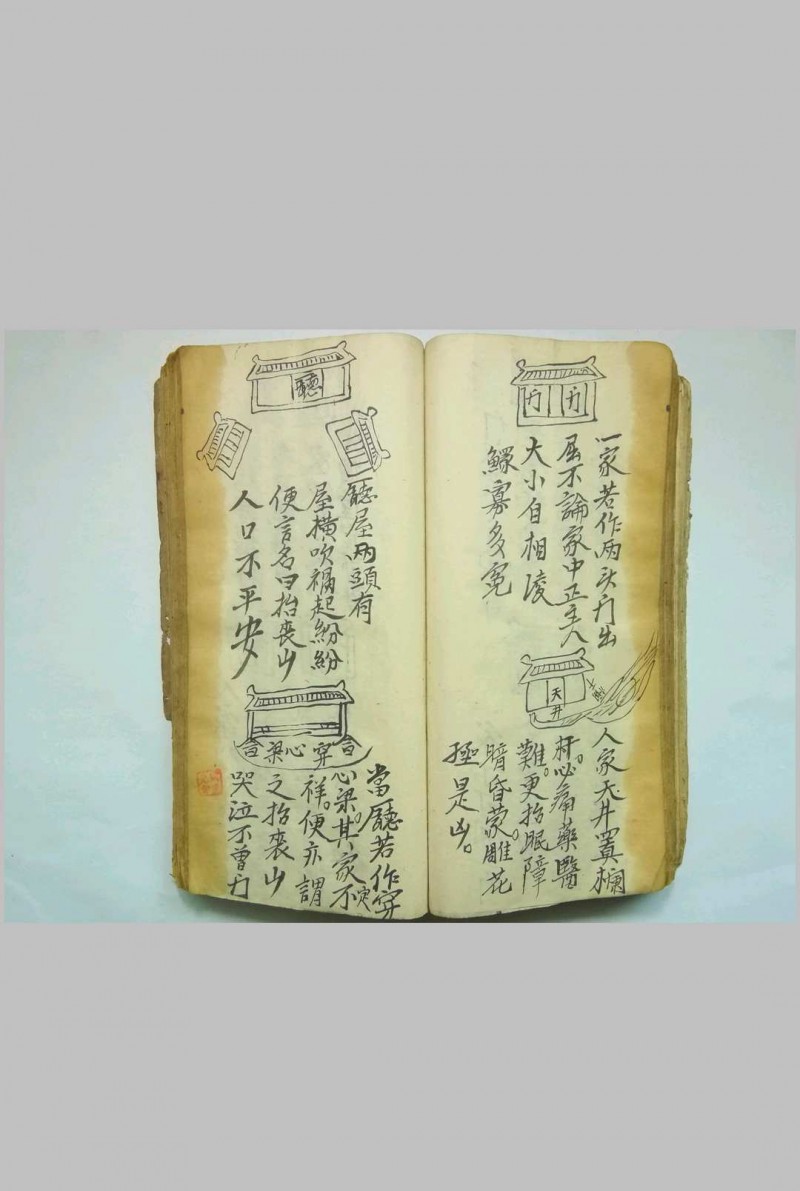 门 门
一家若作两头门出
屋不論家中正主人
大小自相凌
鰥寡多冤
天井
人家天井置欄
肝心痛藥醫
難。更抬眠障
暗昏蒙。雕花
極是凶。
廳
廳屋两頭有
屋横吹禍起紛紛
便言名曰抬喪山
人口不平安
穿心梁
當廳若作穿
心梁。其家不
祥。便亦謂
之抬喪山
哭泣不曾